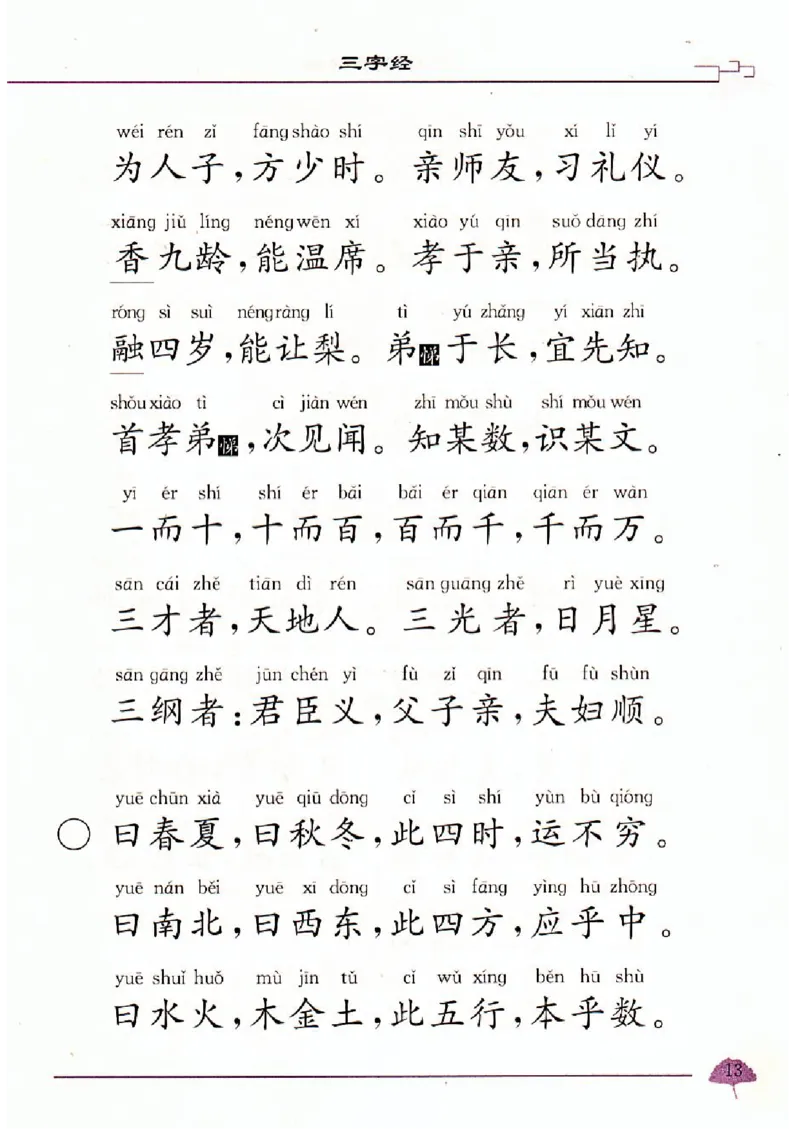 三字经
wéi rén zǐ fāng shào shí qīn shī yǒu xí lǐ yí
为人子，方少时。亲师友，习礼仪。
xiāng jiǔ líng néng wēn xí xiào yú qīn suǒ dāng zhí
香九龄，能温席。孝于亲，所当执。
róng sì suì néng ràng lí tì yú zhǎng yí xiān zhī
融四岁，能让梨。弟悌于长，宜先知。
shǒu xiào tì cì jiàn wén zhī mǒu shù shí mǒu wén
首孝弟悌，次见闻。知某数，识某文。
yī ér shí shí ér bǎi bǎi ér qiān qiān ér wàn
一而十，十而百，百而千，千而万。
sān cái zhě tiān dì rén sān guāng zhě rì yuè xīng
三才者，天地人。三光者，日月星。
sān gāng zhě jūn chén yì fù zǐ qīn fū fù shùn
三纲者：君臣义，父子亲，夫妇顺。
yuē chūn xià yuē qiū dōng cǐ sì shí yùn bù qióng
曰春夏，曰秋冬，此四时，运不穷。
yuē nán běi yuē xī dōng cǐ sì fāng yìng hū zhōng
曰南北，曰西东，此四方，应乎中。
yuē shuǐ huǒ mù jīn tǔ cǐ wǔ xíng běn hū shù
曰水火，木金土，此五行，本乎数。
13